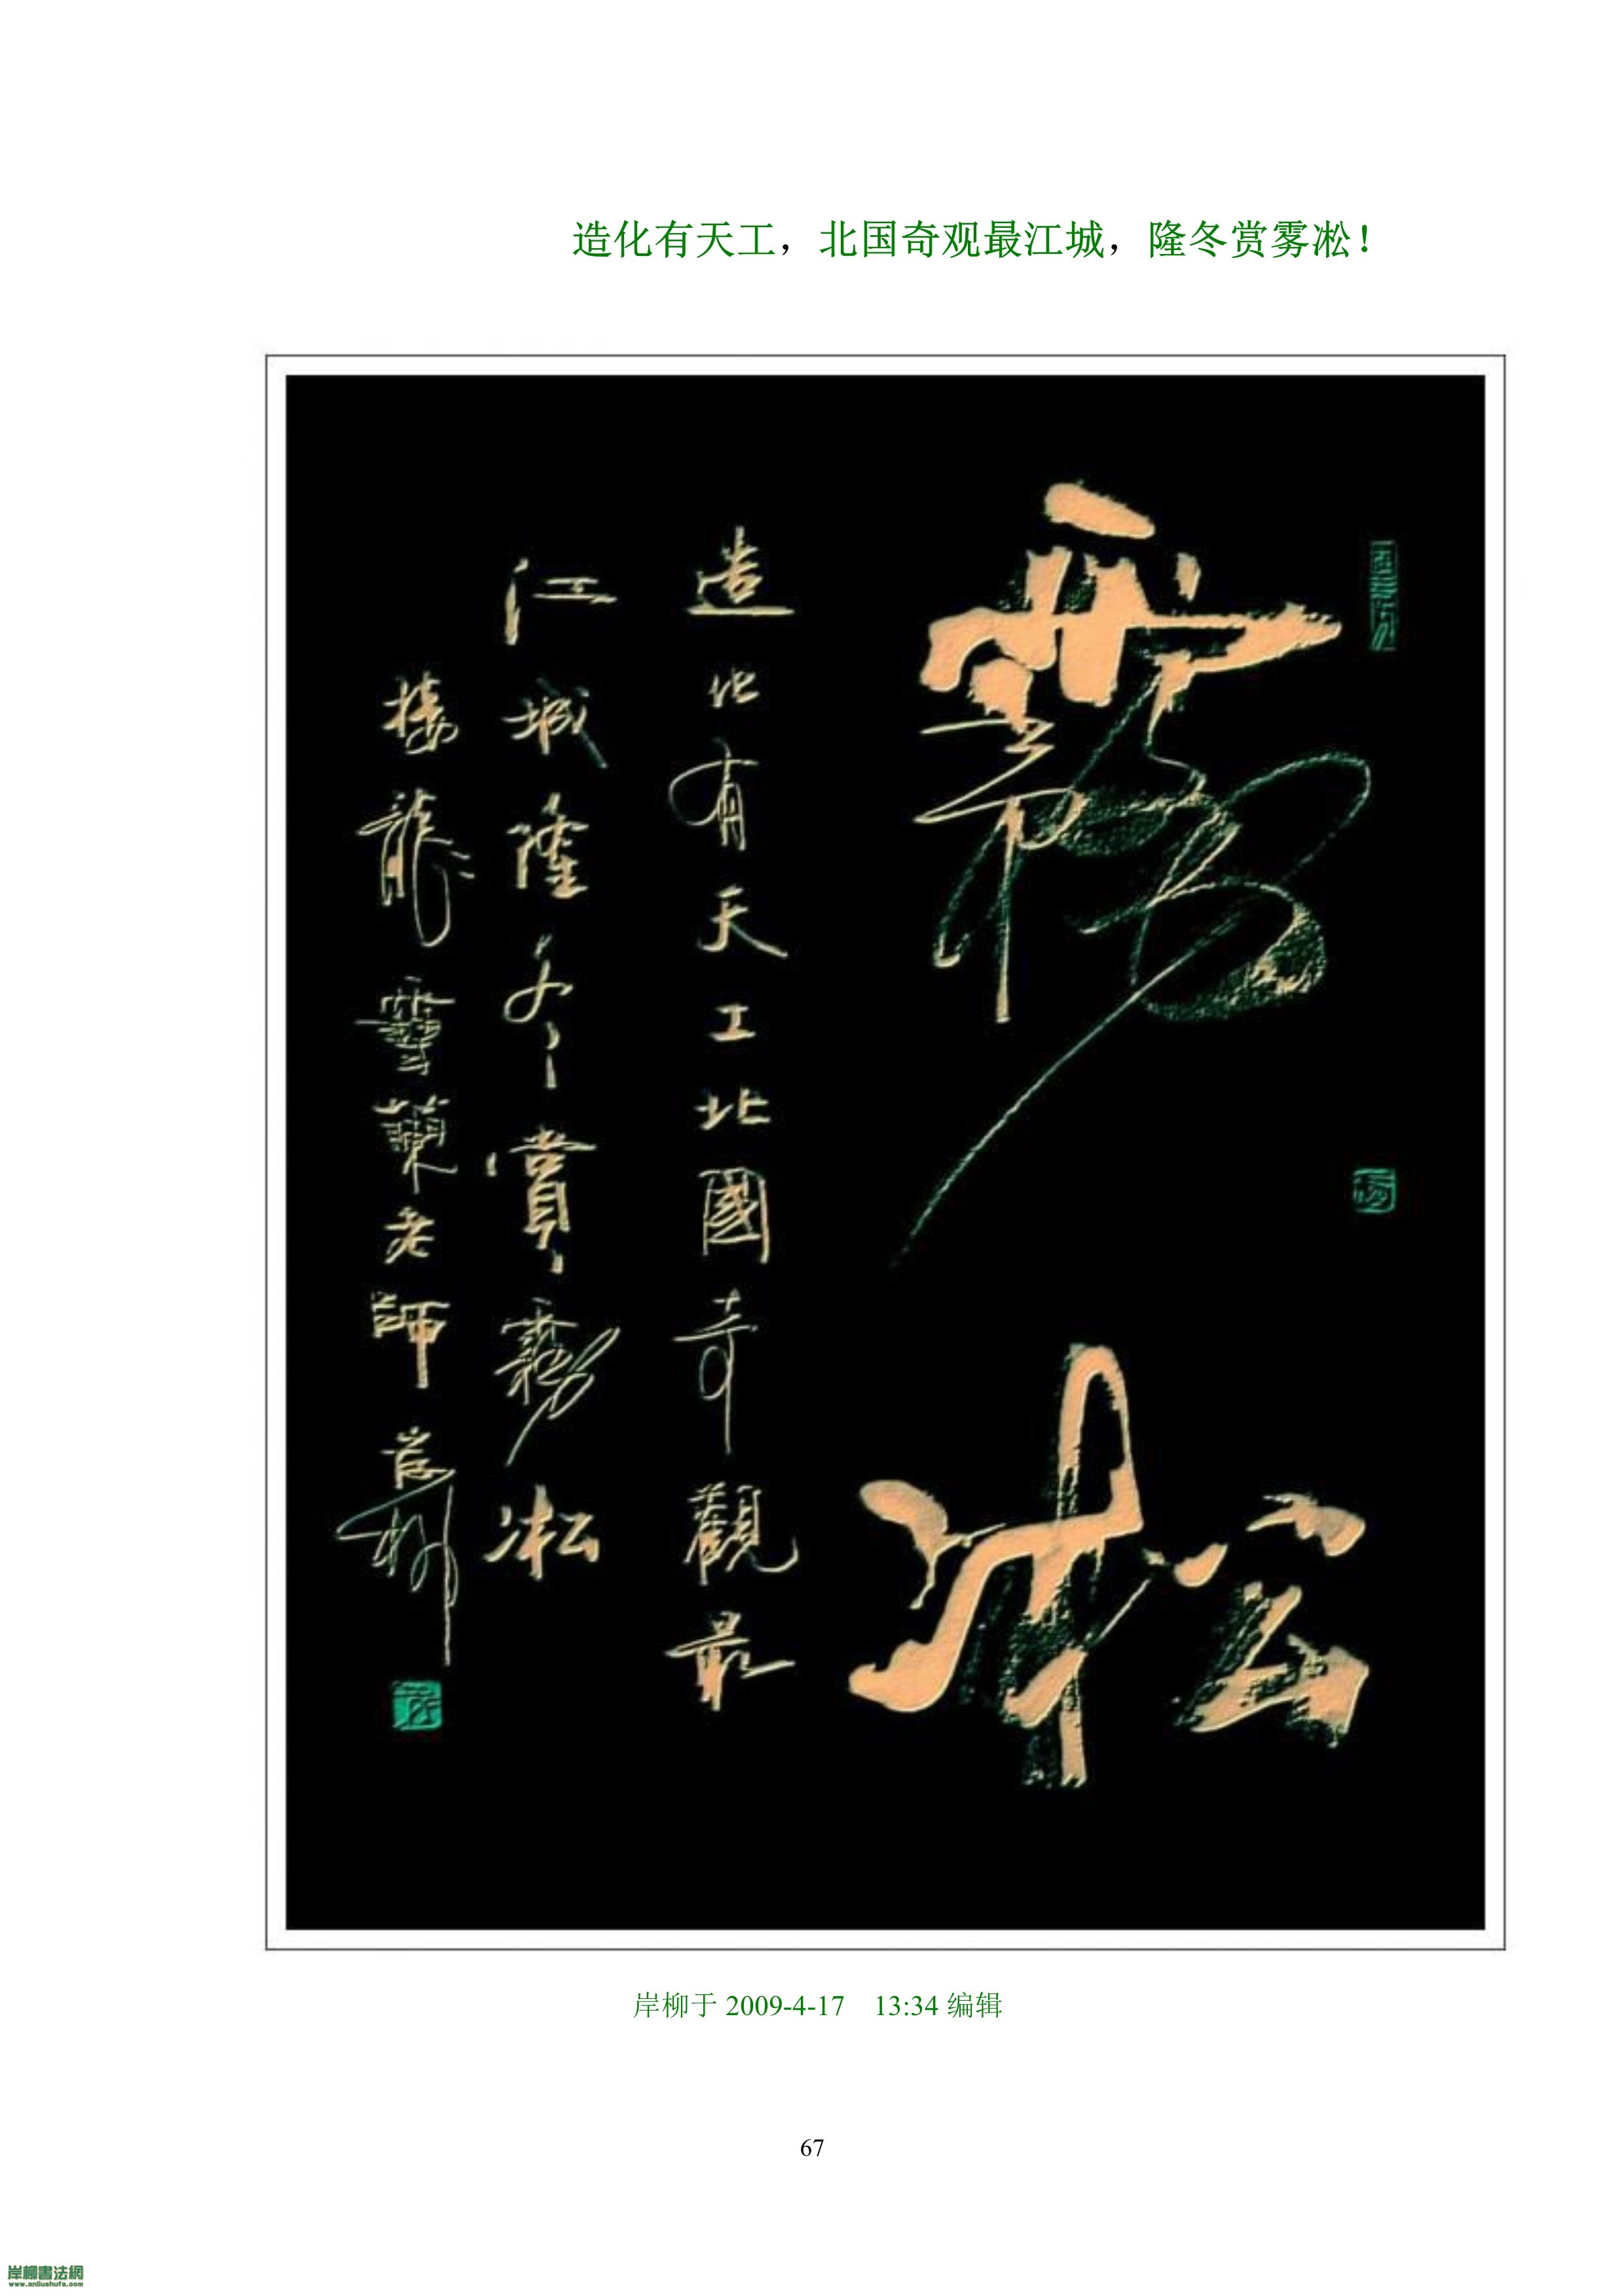 造化有天工，北国奇观最江城，隆冬赏雾凇！
霧凇
造化有天工北國奇觀最
江城隆冬賞霧凇
接龍雪蘭老師岸柳
岸柳于 2009-4-17 13:34 编辑
67
岸柳書法網
www.anliushufa.com